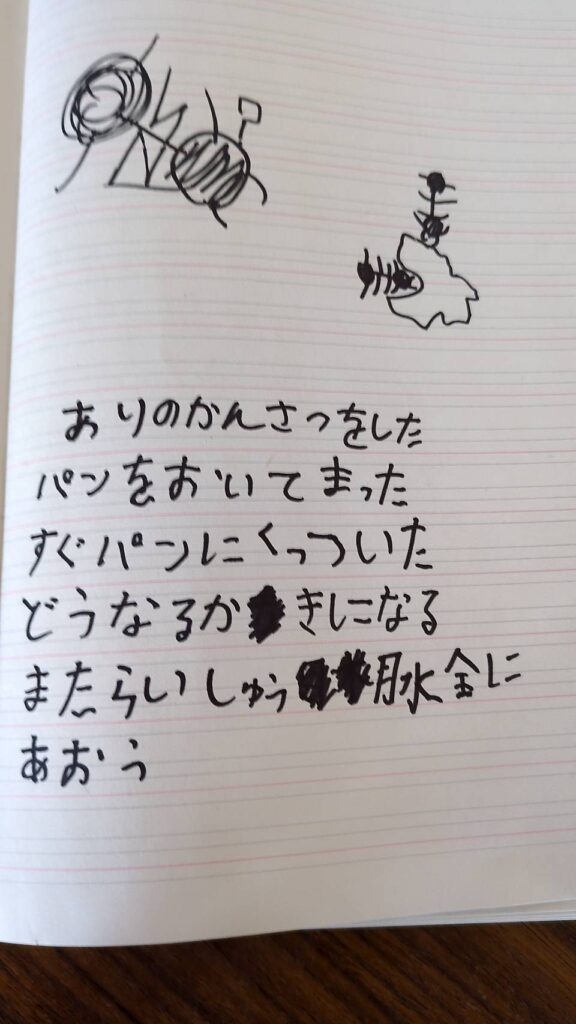 ありのかんさつをした
パンをおいてまった
すぐパンにくっついた
どうなるかきになる
またらいしゅう月水金に
あおう